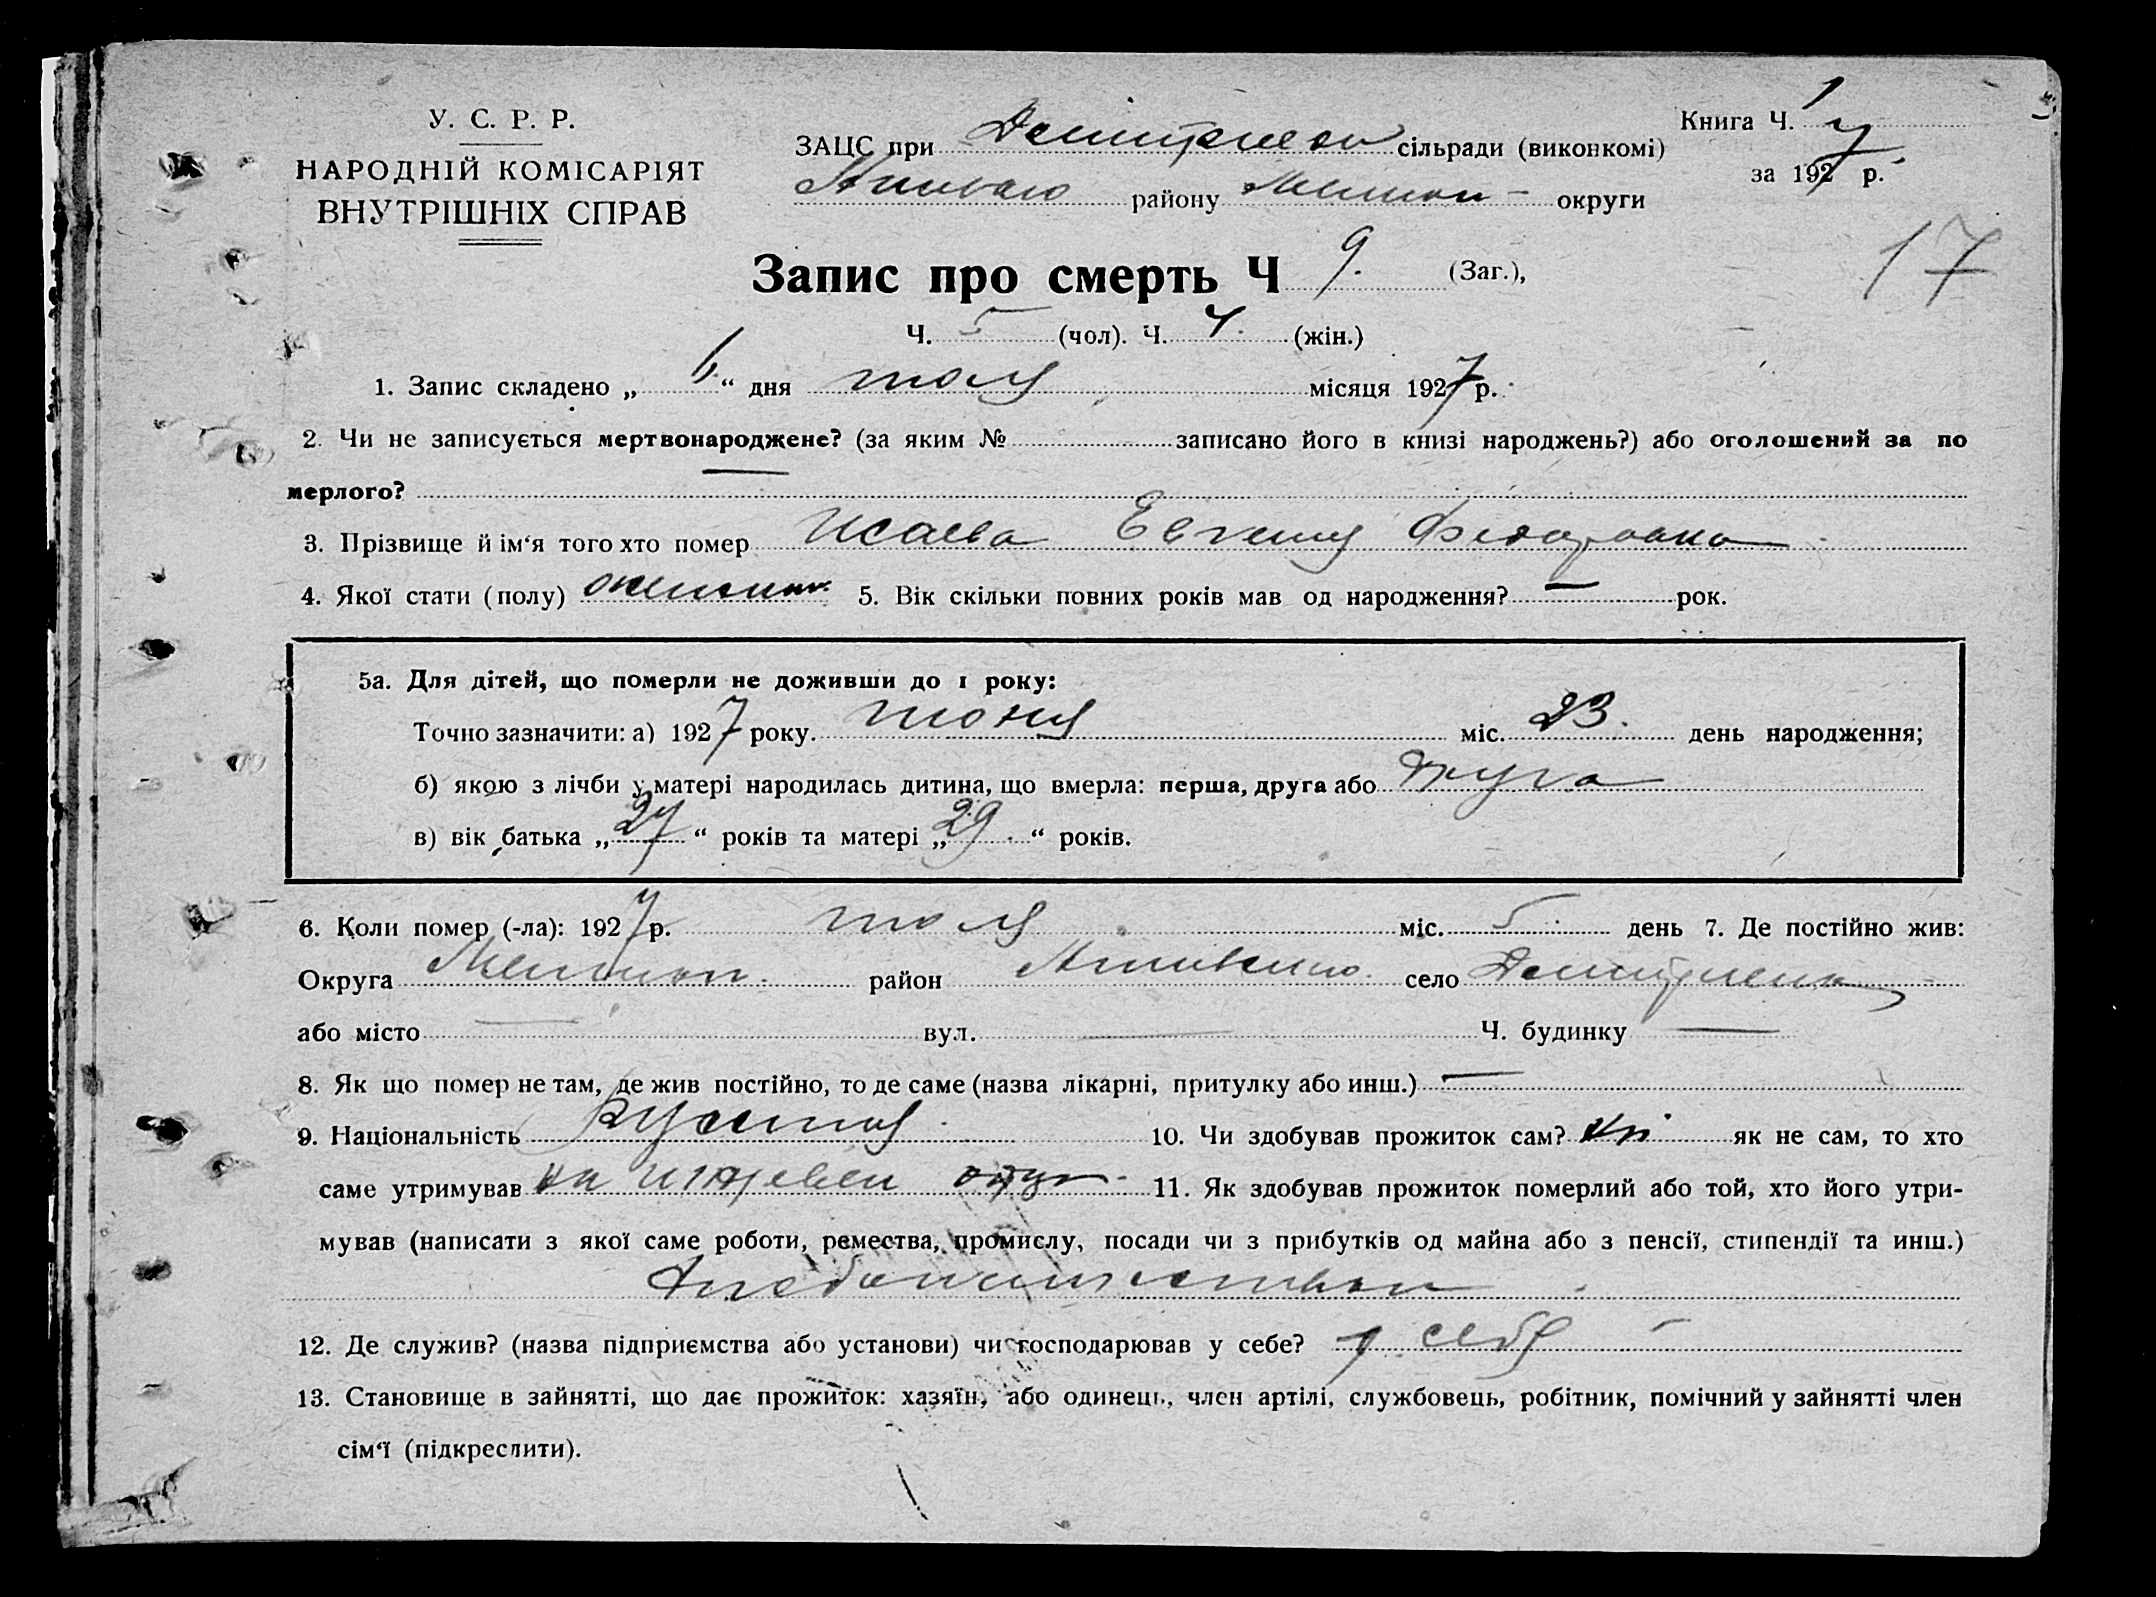 У. С. Р. Р.
НАРОДНІЙ КОМІСАРІЯТ
ВНУТРІШНІХ СПРАВ
ЗАЦС при сільради (виконкомі)
району округи
Книга Ч. 1
за 1927 р.
17
Запис про смерть Ч 9. (Заг.),
Ч. 5 (чол). Ч. 4. (жін.)
1. Запис складено „ 6 “ дня июля місяця 1927 р.
2. Чи не записується мертвонароджене? (за яким № записано його в книзі народжень?) або оголошений за по
мерлого?
3. Прізвище й ім‘я того хто помер Исаева Евгения Федоровна
4. Якої стати (полу) 5. Вік скільки повних років мав од народження? — рок.
5а. Для дітей, що померли не доживши до 1 року:
Точно зазначити: а) 1927 року. июня міс. 23. день народження;
б) якою з лічби у матері народилась дитина, що вмерла: перша, друга або друга
в) вік батька „ 27 “ років та матері „ 29 “ років.
6. Коли помер (-ла): 1927 р. июля міс. 5 день 7. Де постійно жив:
Округа район село
або місто — вул. — Ч. будинку —
8. Як що помер не там, де жив постійно, то де саме (назва лікарні, притулку або инш.) —
9. Національність Русская 10. Чи здобував прожиток сам? ні як не сам, то хто
саме утримував на иждевен отца 11. Як здобував прожиток померлий або той, хто його утри-
мував (написати з якої саме роботи, ремества, промислу, посади чи з прибутків од майна або з пенсії, стипендії та инш.)
12. Де служив? (назва підприємства або установи) чи господарював у себе? у себя
13. Становище в зайнятті, що дає прожиток: хазяїн, або одинець, член артілі, службовець, робітник, помічний у зайнятті член
сім‘ї (підкреслити).